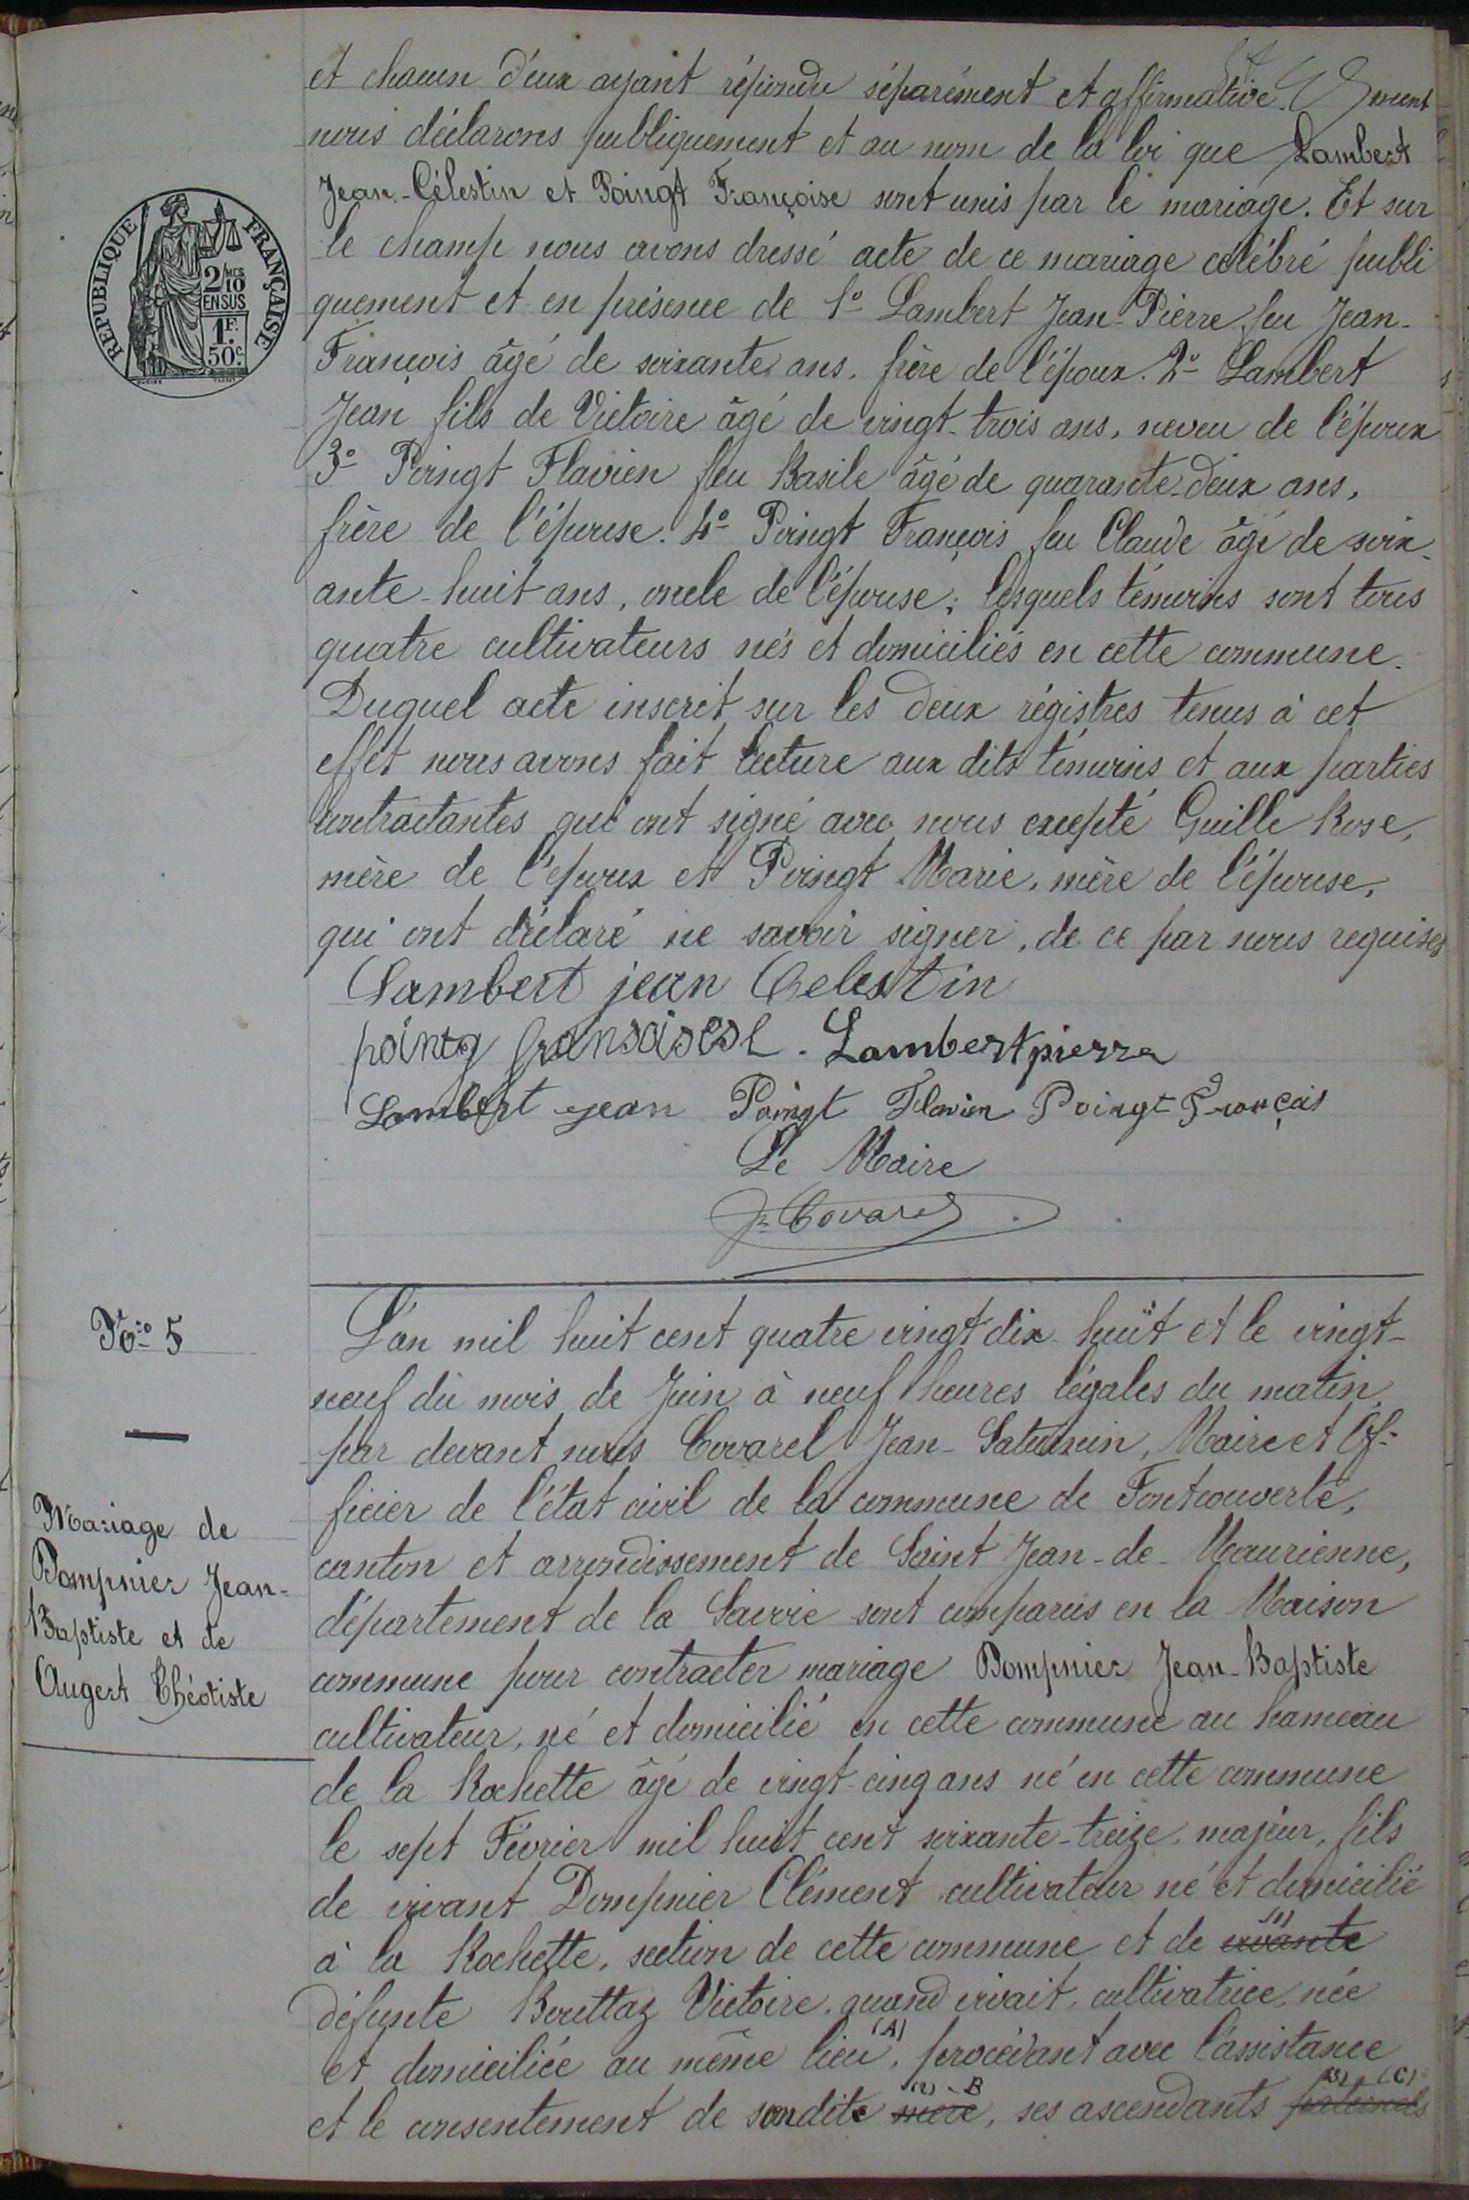 et chacun d'eux ayant répondu séparément et affirmative ment
nous déclarons publiquement et au nom de la loi que Lambert
Jean-Célestin et Poingt Françoise sont unis par le mariage. Et sur
le champ nous avons dressé acte de ce mariage célébré publi
quement et en présence de 1º Lambert Jean-Pierre feu Jean-
François âgé de soixante ans, frère de l'époux. 2º Lambert
Jean fils de Victoire âgé de vingt-trois ans, neveu de l'époux
3º Poingt Flavien feu Basile âgé de quarante-deux ans,
frère de l'épouse. 4º Poingt François feu Claude âgé de soix-
ante-huit ans, oncle de l'épouse; lesquels témoins sont tous
quatre cultivateurs nés et domiciliés en cette commune.
Duquel acte inscrit sur les deux régistres tenus à cet
effet nous avons fait lecture aux dits témoins et aux parties
contractantes qui ont signé avec nous excepté Guille Rose,
mère de l'époux et Poingt Marie, mère de l'épouse,
qui ont déclaré ne savoir signer, de ce par nous requises
Lambert jean Celestin
Lambert pierre
Lambert jean Poingt Flavien Poingt François
Le Maire
Covarel
REPUBLIQUE FRANÇAISE
2/10 MES
EN SUS
1 F.
50 c.
Nº 5
Mariage de
Dompnier Jean-
Baptiste et de
Augert Théotiste
L'an mil huit cent quatre vingt dix huit et le vingt-
neuf du mois de Juin à neuf heures légales du matin,
par devant nous Covarel Jean-Saturnin, Maire et Of-
ficier de l'état civil de la commune de Fontcouverte,
canton et arrondissement de Saint Jean-de-Maurienne,
département de la Savoie sont comparus en la Maison
commune pour contracter mariage Dompnier Jean-Baptiste
cultivateur, né et domicilié en cette commune au hameau
de la Rochette âgé de vingt-cinq ans né en cette commune
le sept Février mil huit cent soixante-treize, majeur, fils
de vivant Dompnier Clément cultivateur né et domicilié
à la Rochette, section de cette commune et de vivante (1)
défunte Bouttaz Victoire, quand vivait, cultivatrice, née
et domiciliée au même lieu (A), procédant avec l'assistance
et le consentement de sondite mère (2) B, ses ascendants paternels (3) (C)